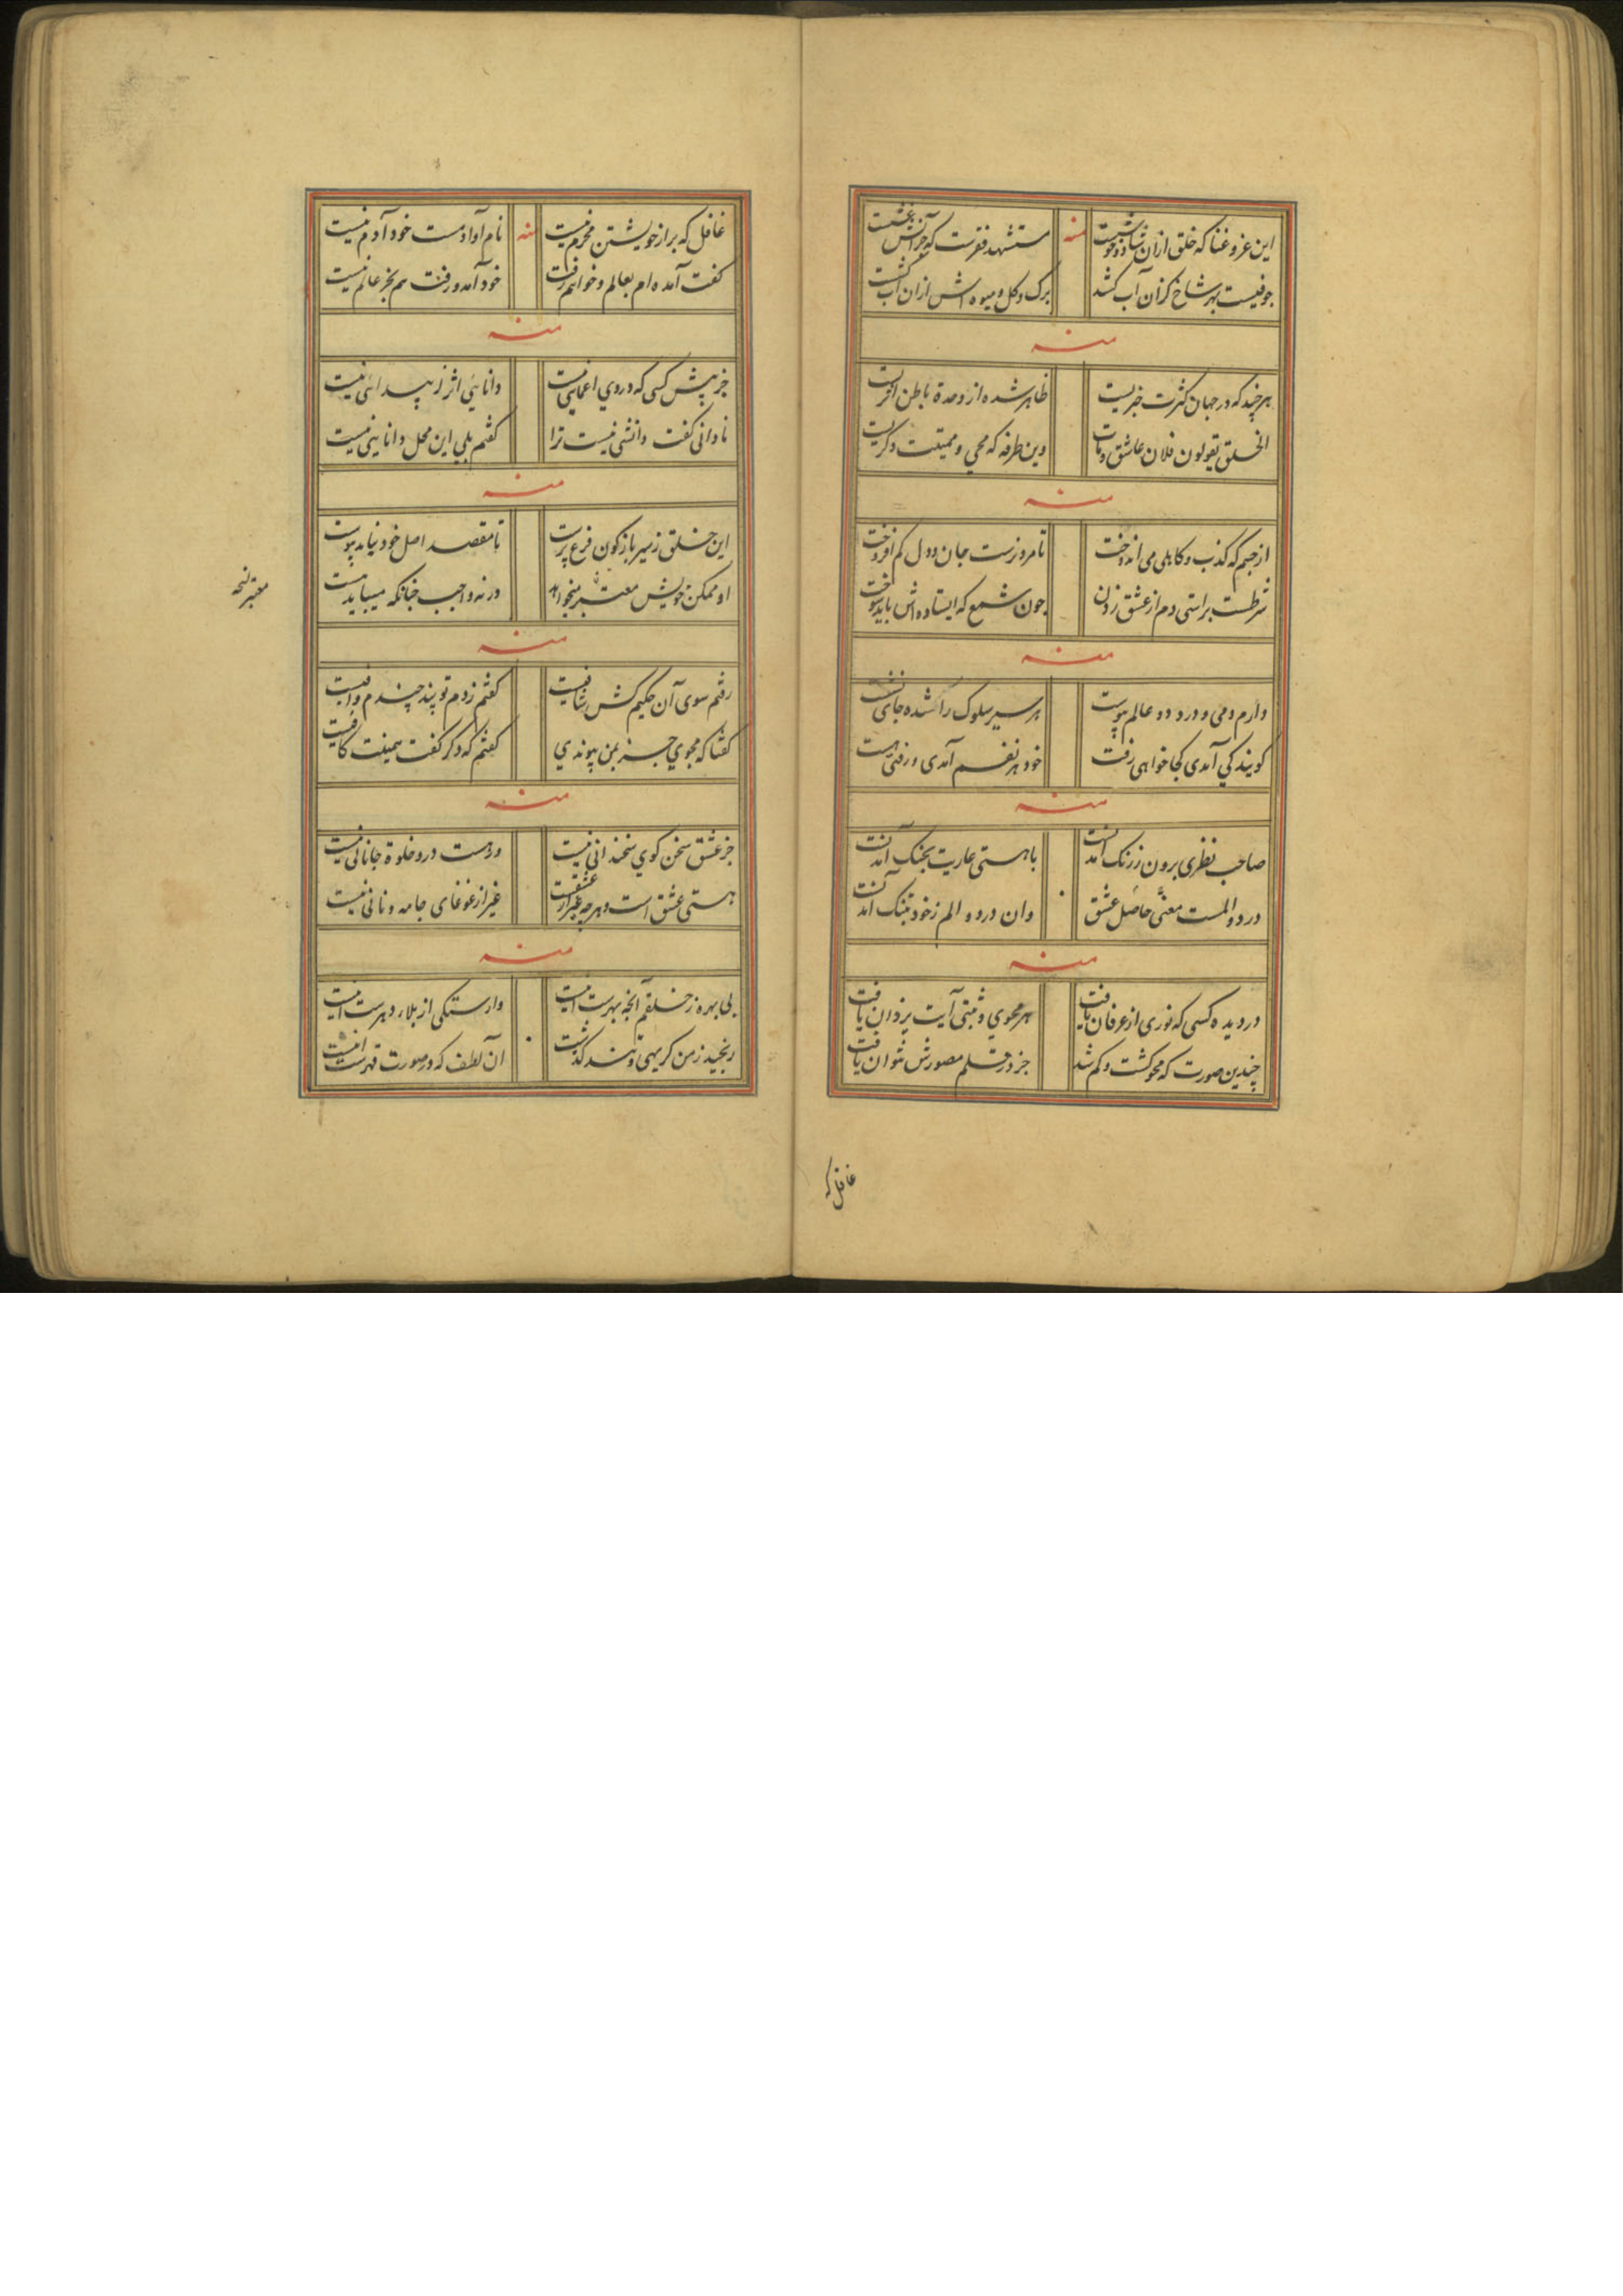 این عز و غنا که خلق ازان شاد و خوشست
منه
مستشهد فقرست که
جوفیست بهر شاخ کزان آب کشد
برک و کل و میوه اش ازان آب
منه
هر چند که در جهان کثرت خبریست
ظاهر شده از وحدة باطن اثریست
الخلق یقولون فلان عاشق ومات
وین طرفه که محیی و ممیتت دکریست
منه
از جسم که کذب و کاهلی می اندوخت
تا مرو زست جان و دل کم افروخت
شرطست براستی دم از عشق زدن
جون شمع که ایستاده اش باید سوخت
منه
دارم دمی و درو دو عالم پیوست
هر سیر سلوک را شده جای نشست
کویند کی آمدی کجا خواهی رفت
خود هر نفسم آمدی و رفتی هست
منه
صاحب نظری برون ز رنک آمد نت
با هستی عاریت بجنک آمد نت
درد و المست معنی حاصل عشق
وان درد و الم ز خود بتنک آمد نت
منه
در دیده کسی که نوری از عرفان یافت
هر محوی و مثبتی آیت یزدان یافت
چندین صورت که محو کشت و کم شد
جز در قلم مصورش نتوان یافت
غافل که
غافل که بر از خویشتن محرم نیست
منه
نام آوا دمست خود آدم نیست
کفت آمده ام بعالم و خواهم رفت
خود آمد و رفت هم بجز عالم نیست
منه
جز پیش کسی که در وی اعمایی نیست
دانایی اثر ز پیدایی نیست
نادانی کفت دانشی نیست ترا
کفتم بلی این محل دانایی نیست
منه
این خلق ز سیر باژکون فرع پرست
تا مقصد اصل خود نیابد پیوست
او ممکن خویش معتبر میخواهد
ورنه واجب جنانکه میباید هست
معتبر نسخه
منه
رفتم سوی آن حکیم کش شافیست
کفتم زدم تو پند چندم وافیست
کفتا که مجوی جز بمن پیوندی
کفتم که دکر کفت همینت کافیست
منه
جز عشق سخن کوی سخندانی نیست
و رهست درو خلوة جانانی نیست
هستی عشق است و هر جه غیر از عشقست
غیر از غوغای جامه و نانی نیست
منه
بی بهره ز خلقم آنجه بهرست اینست
وارستکی از بلاء دهرست اینست
رنجید ز من کریهی و تند کذشت
آن لطف که در صورت قهرست اینست